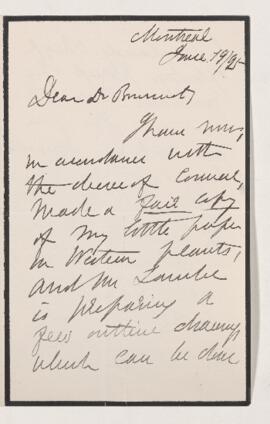 Montreal
June 19/95
Dear Dr Bourinot,
I have now,
in accordance with
the decree of Council,
made a fair copy
of my little paper
on Western plants,
and Mr Lambe
is preparing a
few outline drawings
which can be done